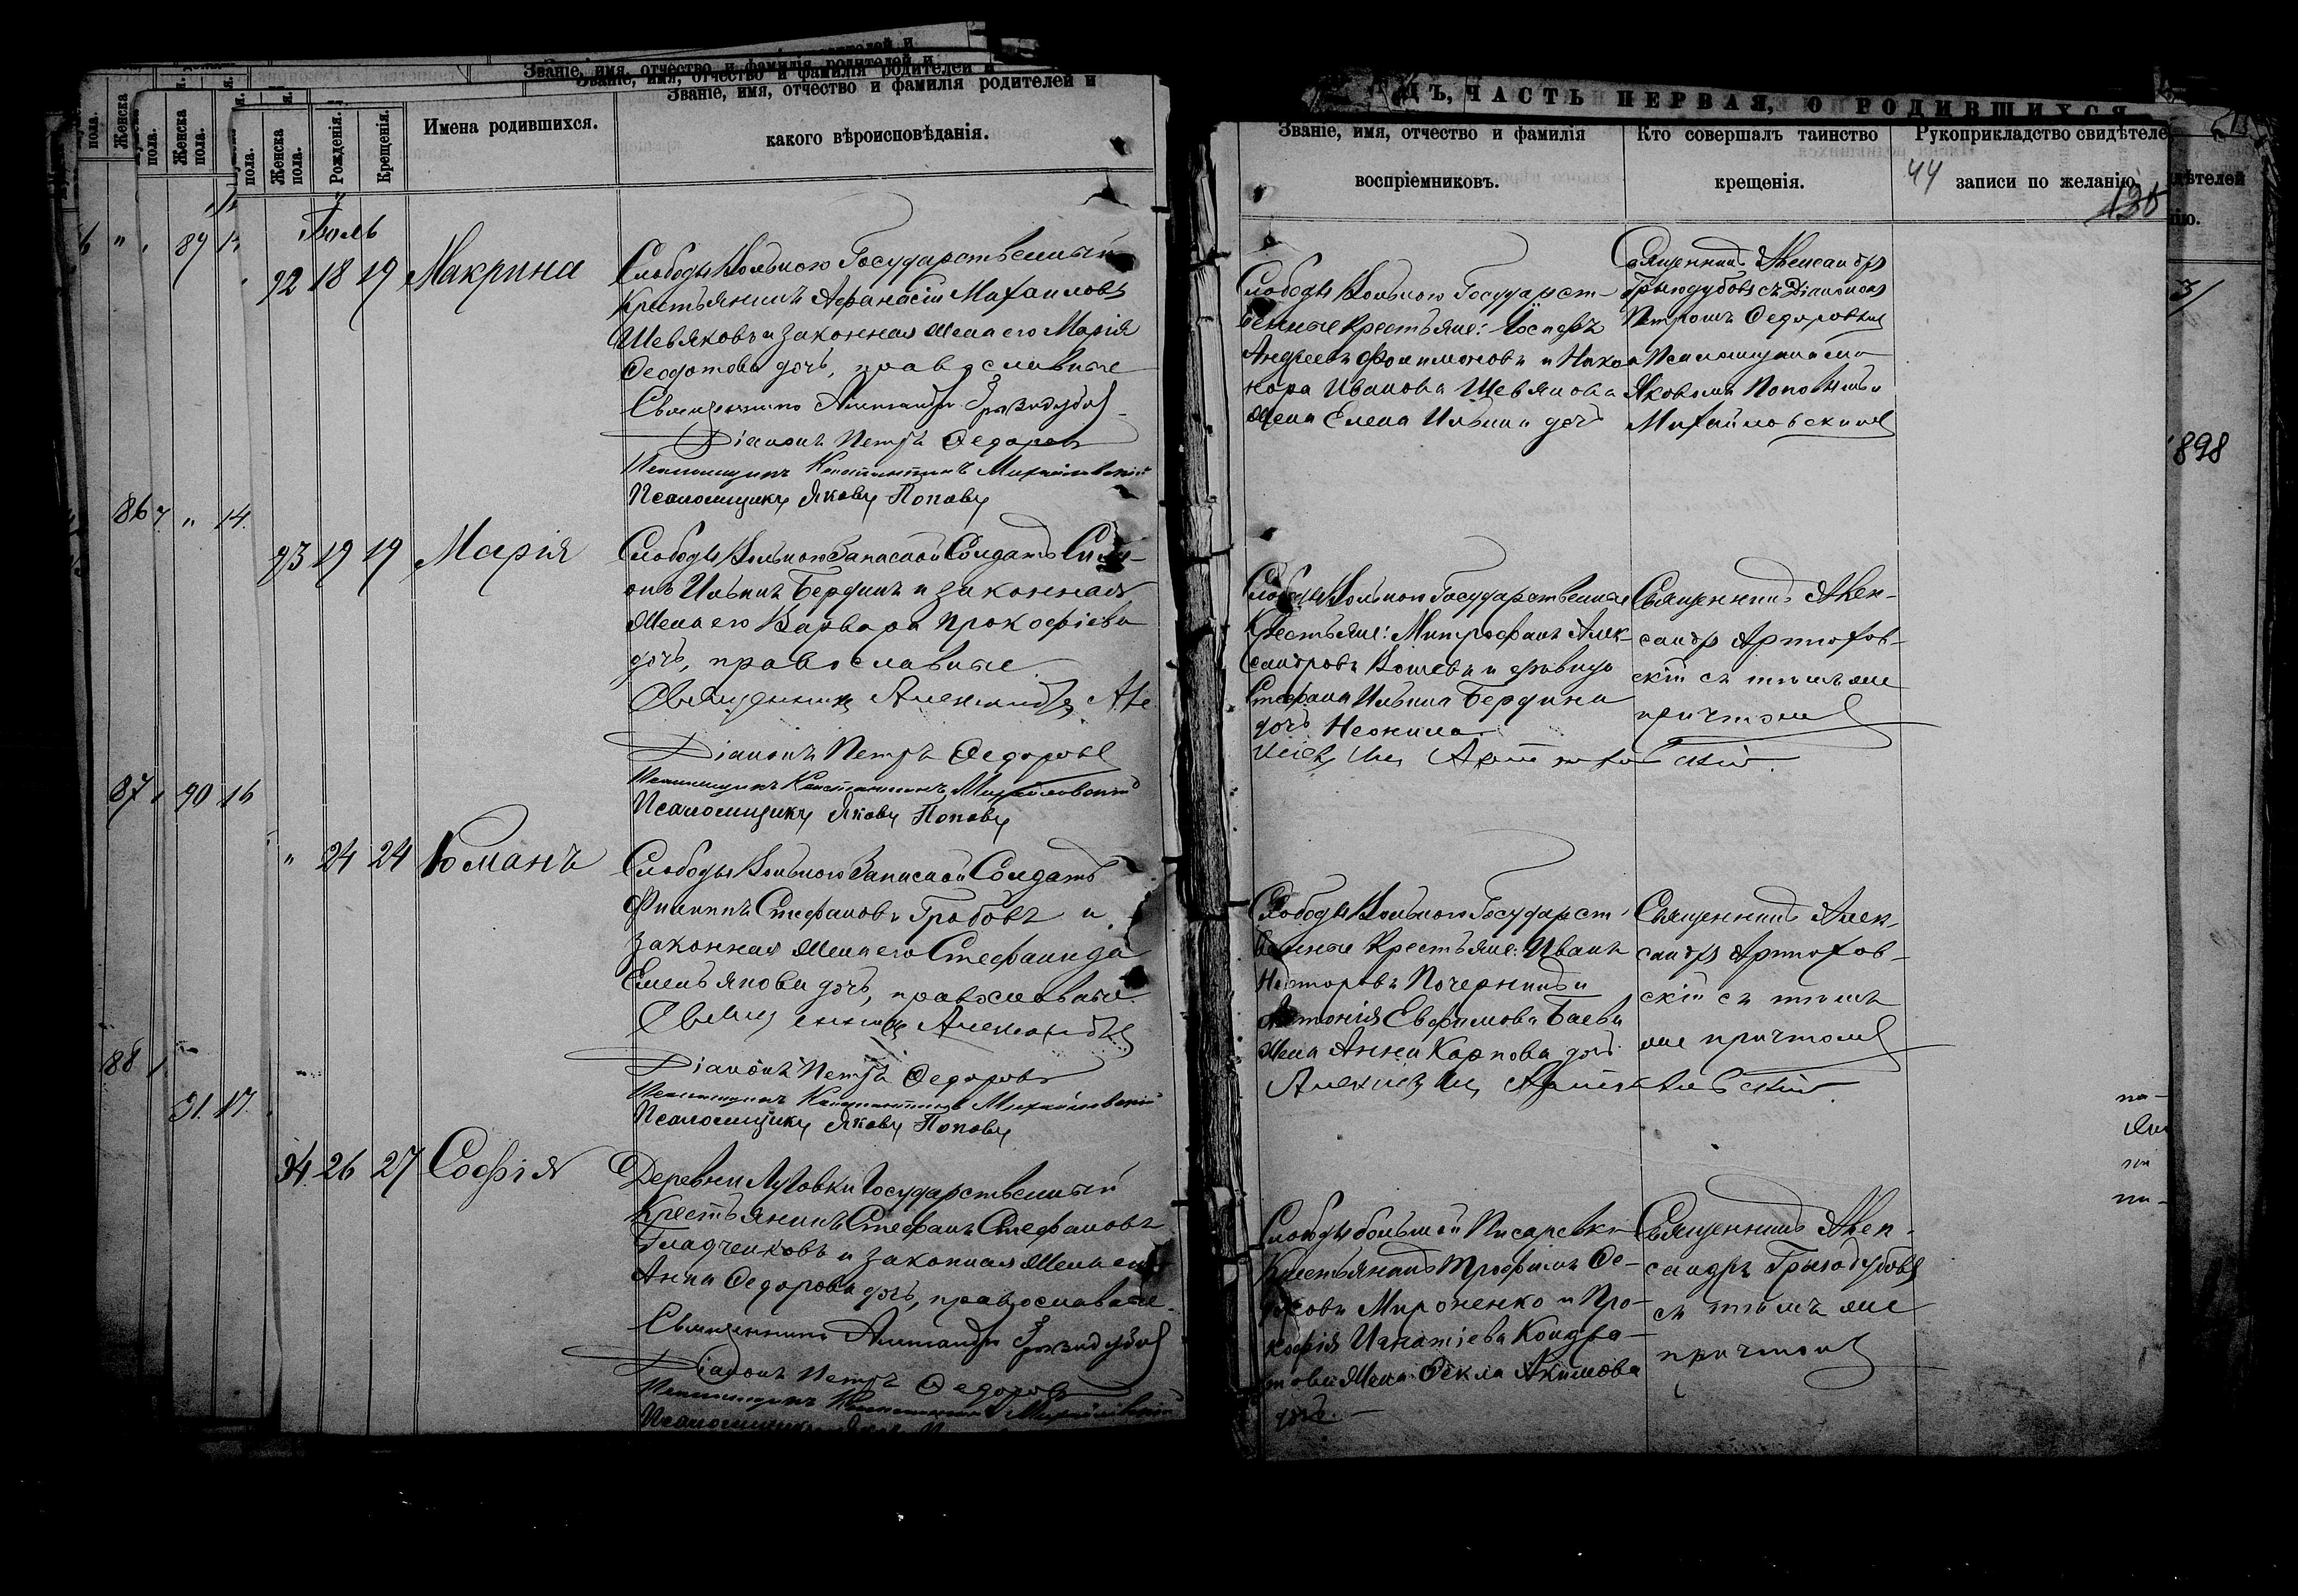 Званіе, имя, отчество и фамилія родителей и
Званіе, имя, отчество и фамилія родителей и
Званіе, имя, отчество и фамилія родителей и
какого вѣроисповѣданія.
Женска пола.
Женска пола.
Женска пола.
Рожденія.
Крещенія.
Имена родившихся.
Іюль
89
92 18 19 Макрина
Слободы Вольной Государственный
Крестьянинъ Афанасій Михаиловъ
Шевяковъ и законная жена его Марія
Феодотова дочь, православные
Священникъ Александръ Грызодубовъ
Діаконъ Петръ Федоровъ
Псаломщикъ Константинъ Михайловскій
Псаломщикъ Яковъ Поповъ
86 " 14
93 19 19 Марія
Слободы Вольной Запасной Солдатъ Сим-
онъ Ильинъ Бердинъ и законная
жена его Варвара Прокофіева
дочь, православные
Священникъ Александръ
Діаконъ Петръ Федоровъ
Псаломщикъ Константинъ Михайловскій
Псаломщикъ Яковъ Поповъ
87 90 16
" 24 24 Романъ
Слободы Вольной Запасной Солдатъ
Филиппъ Стефановъ Гробовъ и
законная жена его Стефанида
Емельянова дочь, православные
Священникъ Александръ
Діаконъ Петръ Федоровъ
Псаломщикъ Константинъ Михайловскій
Псаломщикъ Яковъ Поповъ
88
91 17
94 26 27 Софія
Деревни Луговки Государственный
Крестьянинъ Стефанъ Стефановъ
Гладченковъ и законная жена его
Анна Федорова дочь, православные
Священникъ Александръ Грызодубовъ
Діаконъ Петръ Федоровъ
Псаломщикъ Константинъ Михайловскій
ДЪ, ЧАСТЬ ПЕРВАЯ, О РОДИВШИХСЯ
Званіе, имя, отчество и фамилія
воспріемниковъ.
Кто совершалъ таинство
крещенія.
Рукоприкладство свидѣтеле
44 записи по желанію.
130
дѣтелей
ію.
3/
898
Слободы Вольной Государст-
венные Крестьяне: Іосифъ
Андреевъ Филимоновъ и Ника-
нора Иванова Шевякова
жена Елена Ильина дочь
Священникъ Александръ
Грызодубовъ съ Діакономъ
Петромъ Федоровымъ
и Псаломщиками
Яковомъ Поповымъ и
Михайловскимъ
Слободы Вольной Государственные
Крестьяне: Митрофанъ Алек-
сандровъ Кошевъ и девица
Стефана Ильина Бердина
дочь Неонила
Священникъ Алек-
сандръ Артюхов-
скій съ тѣмъ же
причтомъ
Артюховскій.
Слободы Вольной Государст-
венные Крестьяне: Иванъ
Несторовъ Почернинъ и
Антонія Евфимова Баева
жена Анна Карпова дочь
Священникъ Алек-
сандръ Артюхов-
скій съ тѣмъ
же причтомъ
Слободы Большой Писаревки
Крестьянинъ Трофимъ Фе-
доровъ Мироненко и Про-
кофія Игнатіева Кондра-
това жена Фекла Акимова
дочь.
Священникъ Алек-
сандръ Грызодубовъ
съ тѣмъ же
причтомъ